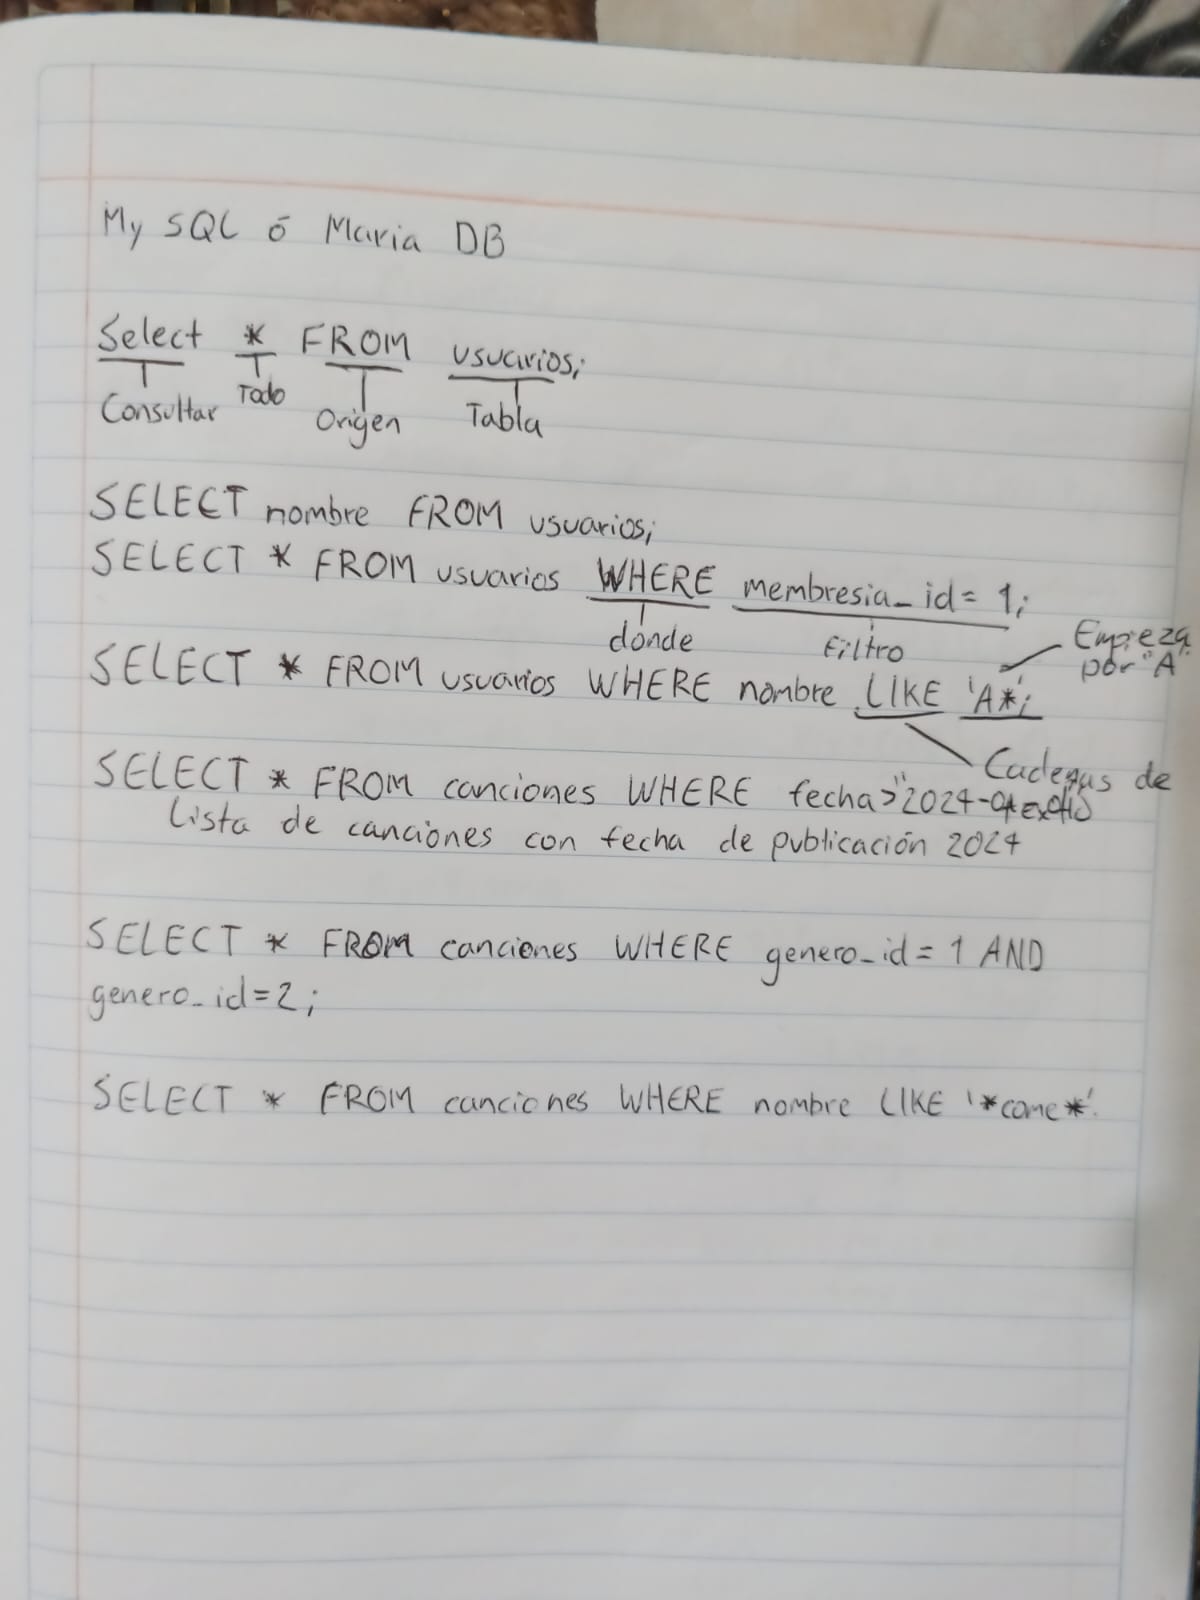 My SQL ó Maria DB
Select * FROM usuarios;
Consultar Todo Origen Tabla
SELECT nombre FROM usuarios;
SELECT * FROM usuarios WHERE membresia_id = 1;
donde Filtro
Empieza por "A"
SELECT * FROM usuarios WHERE nombre LIKE 'A*';
Cadenas de texto
SELECT * FROM canciones WHERE fecha>"2024-
Lista de canciones con fecha de publicación 2024
SELECT * FROM canciones WHERE genero_id = 1 AND
genero_id=2;
SELECT * FROM canciones WHERE nombre LIKE '*come*'.